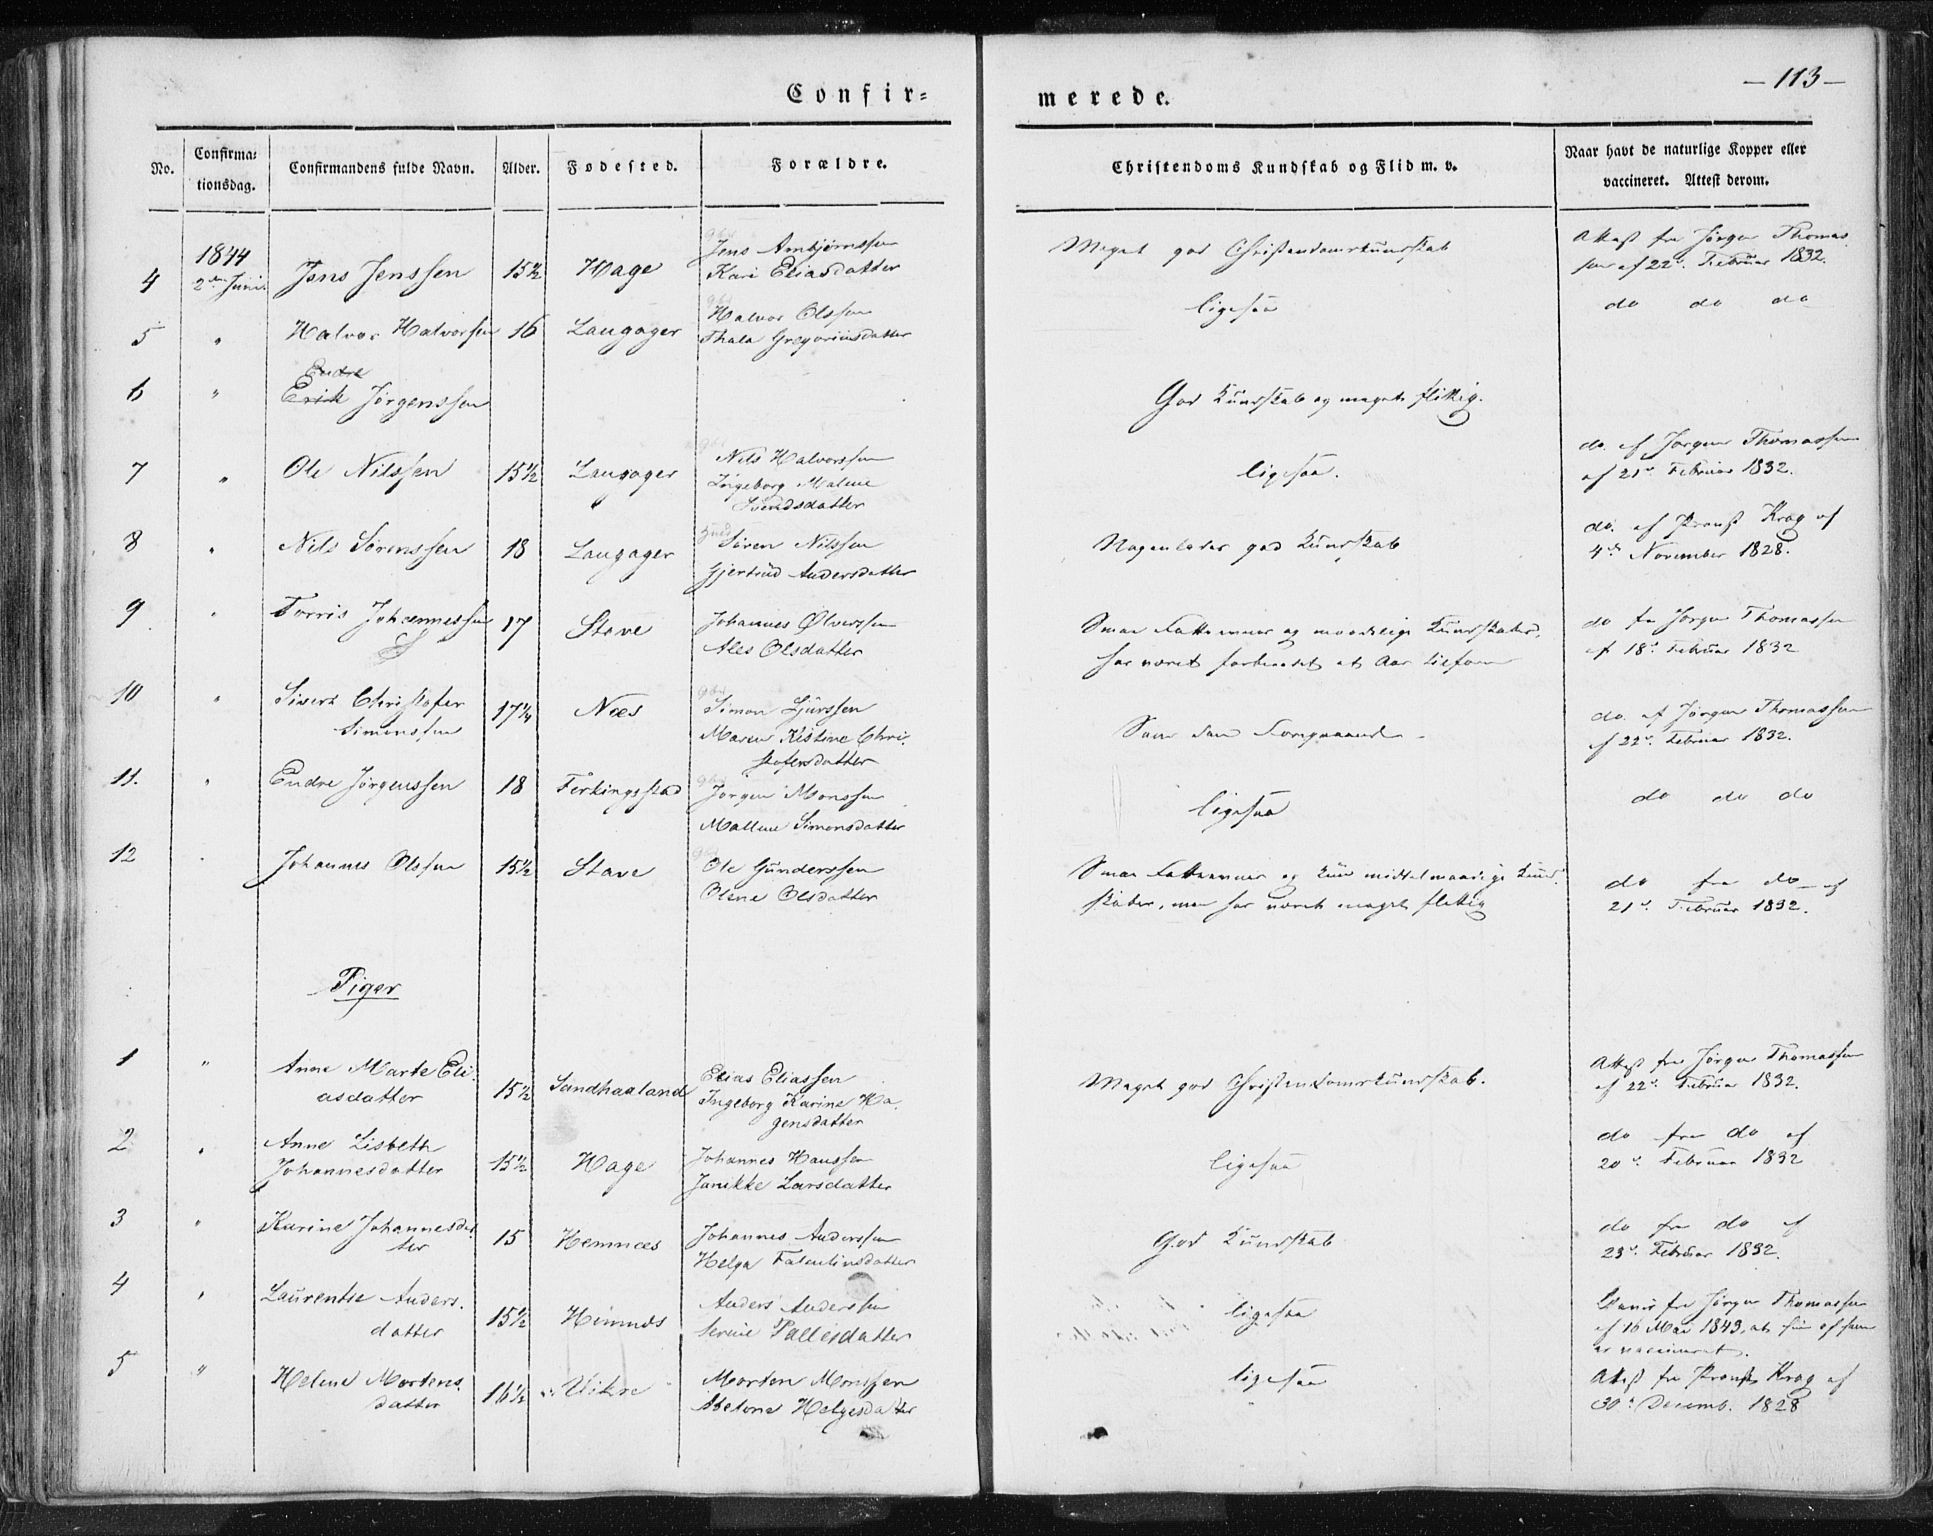 Confir-
merede.
- 113 -
No.
Confirma-
tionsdag.
Confirmandens fulde Navn.
Alder.
Fødested.
Forældre.
Christendoms Kundskab og Flid m. v.
Naar havt de naturlige Kopper eller
vaccineret. Attest derom.
1844
4 2den Juni. Jens Jenssen 15½ Hage
Jens Ambjørnssen
Kari Eliasdatter
Meget god Christendomskundskab
Attest fra Jørgen Thomas
sen af 22d. Februar 1832.
5 " Halvor Halvorssen 16 Laugager
Halvor Olssen
Thala Gregoriusdatter
ligesaa
do do do
6 " Endre
Erik Jørgenssen
God Kundskab og meget flittig.
7 " Ole Nilssen 15½ Laugager
Nils Halvorssen
Ingeborg Malene
Svendsdatter
ligesaa.
do. af Jørgen Thomassen
af 21d. Februar 1832.
8 " Nils Sørenssen 18 Laugager
Søren Nilssen
Gjertrud Andersdatter
Nogenledes god Kundskab
do. af Provst Krog af
4de November 1828.
9 " Torris Johannessen 17 Stave
Johannes Ølverssen
Ales Olsdatter
Smaa Fatteevner og maadelige Kundskaber,
har været forberedet et Aar tilforn
do fra Jørgen Thomassen
af 18d. Februar 1832
10 " Sivert Christofer
Simonssen
17¼ Næs
Simon Sjurssen
Maren Kistine Chri-
stofersdatter
Som den Foregaaende.
do. af Jørgen Thomassen
af 22d. Februar 1832.
11. " Endre Jørgenssen 18 Ferkingstad
Jørgen Monssen
Mallene Simonsdatter
ligesaa
do do do
12 " Johannes Olssen 15½ Stave
Ole Gunderssen
Olene Olsdatter
Smaa Fatteevner og kun middelmaadige Kund-
skaber, men har været meget flittig
do fra do af
21d. Februar 1832.
Piger
1 " Anne Marte Eli-
asdatter
15½ Sandhaaland
Elias Eliassen
Ingeborg Karine Ha-
gensdatter
Meget god Christendomskundskab.
Attest fra Jørgen Thomassen
af 22d. Februar 1832.
2 " Anne Lisbeth
Johannesdatter
15½ Hage
Johannes Hanssen
Janikke Larsdatter
ligesaa
do fra do af
20d. Februar 1832
3 " Karine Johannesdat-
ter
15 Hemnæs
Johannes Anderssen
Helga Falentinsdatter
God Kundskab
do fra do af
23d. Februar 1832.
4 " Laurentse Anders-
datter
15½ Hemnæs
Anders Anderssen
Serine Pallesdatter
ligesaa
fra Jørgen Thomassen
af 16 Mai 1843, at hun af ham
er vaccineret.
5 " Helene Mortens-
datter
16½ Vikre
Morten Monssen
Abelone Helgesdatter
ligesaa
Attest fra Provst Krog af
30d. Decemb. 1828